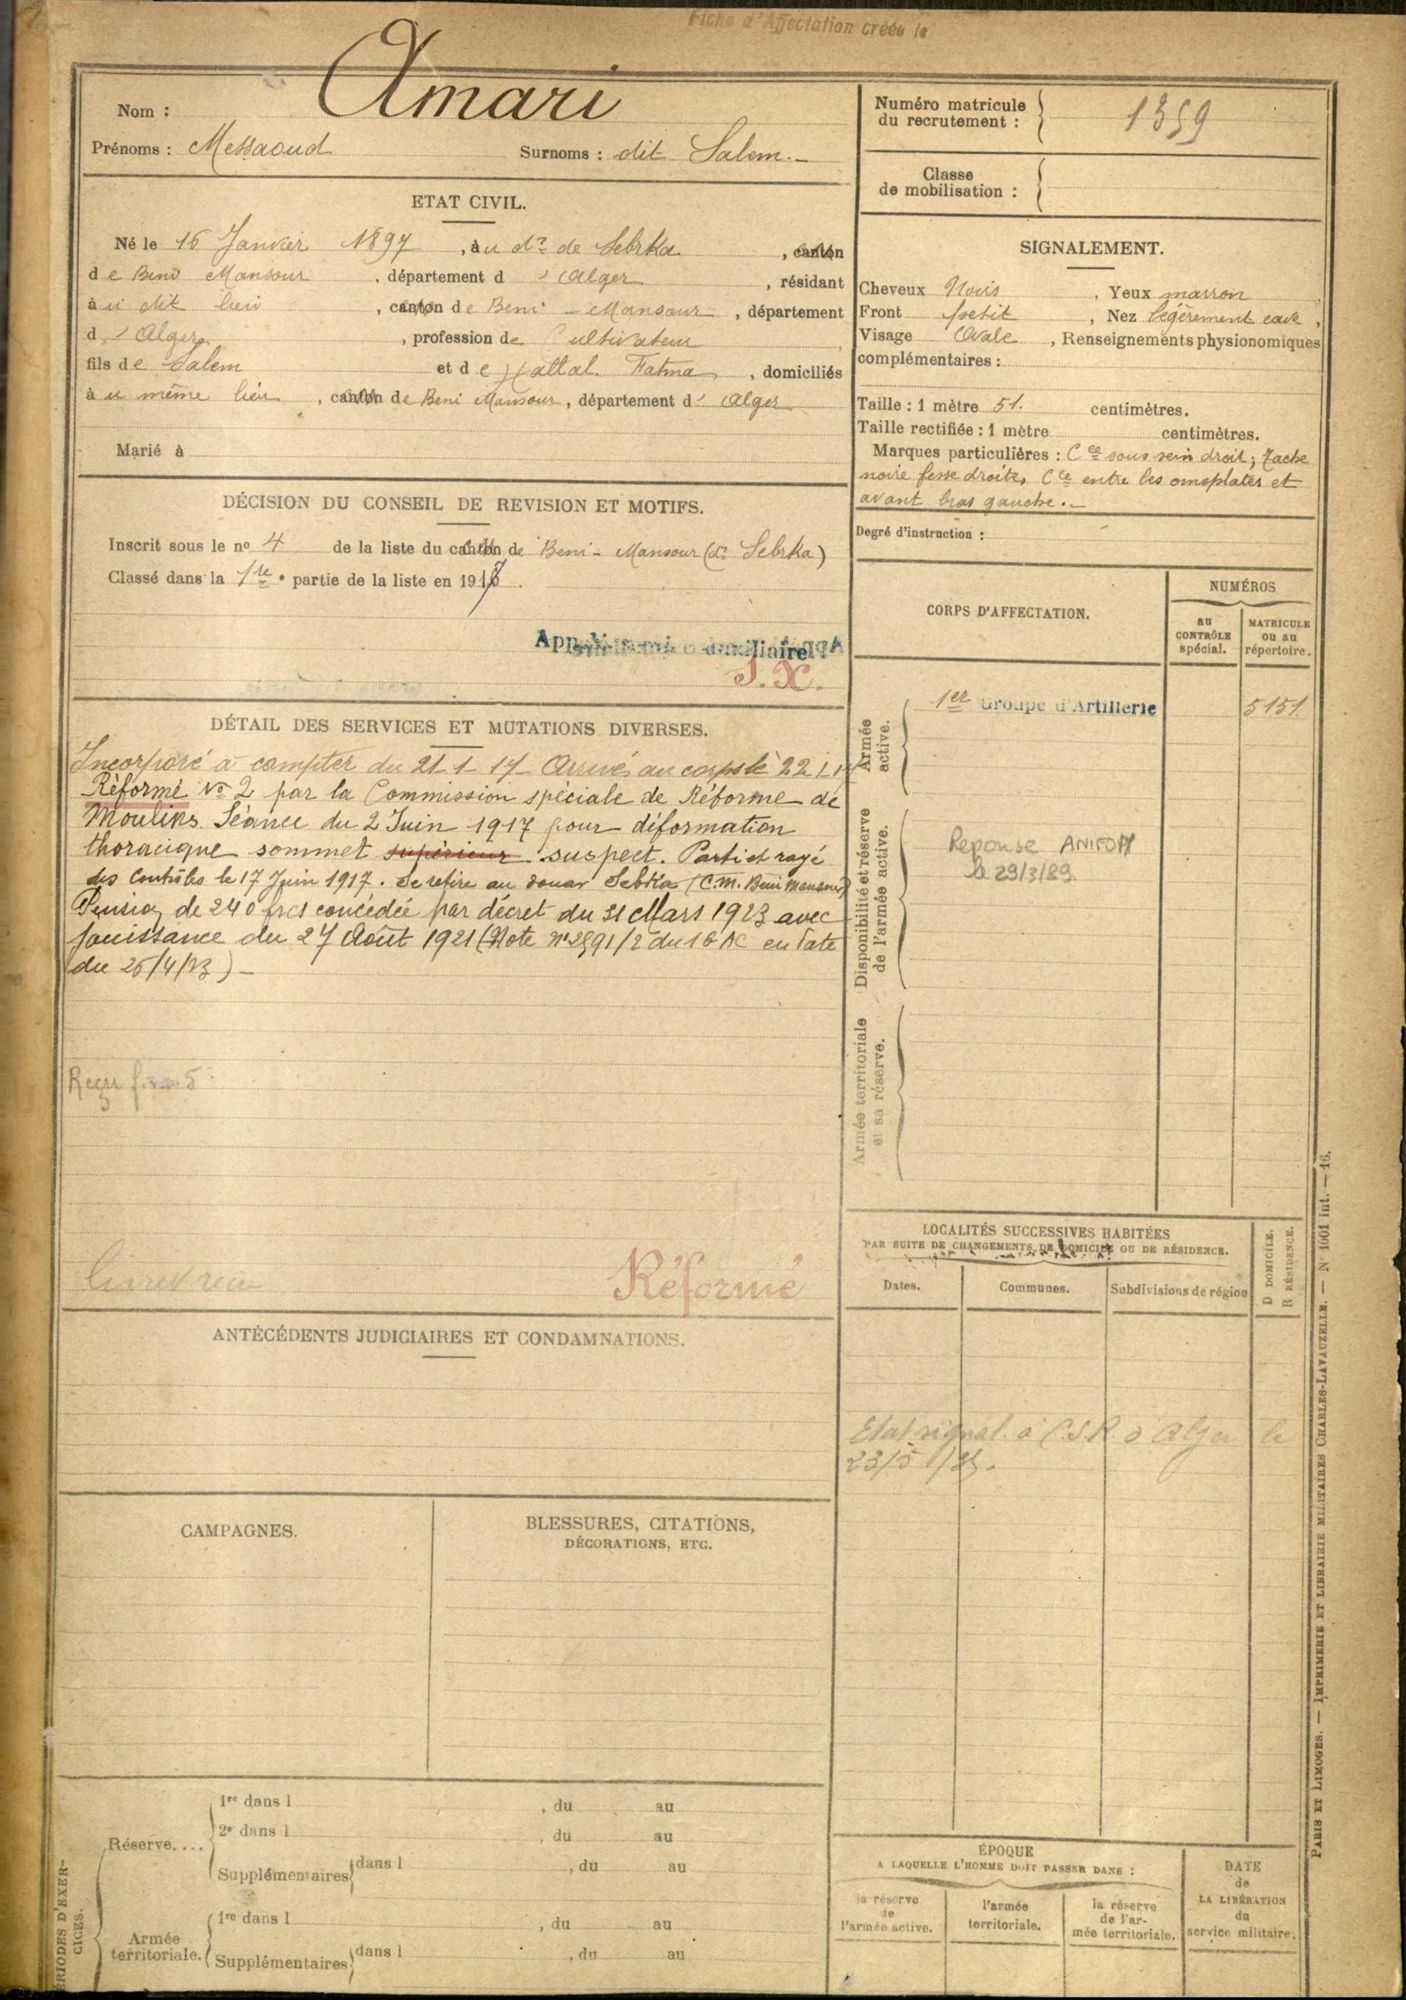 Fiche d'Affectation créée le
Nom : Amari
Prénoms : Messaoud Surnoms : dit Salem.-
ETAT CIVIL.
Né le 16 Janvier 1897, àu dr de Sebrka, canton
de Beni Mansour, département d'Alger, résidant
àu dit lieu, canton de Beni-Mansour, département
d'Alger, profession de Cultivateur
fils de Salem et de Hattal Fatma, domiciliés
àu même lieu, canton de Beni Mansour, département d'Alger
Marié à
DÉCISION DU CONSEIL DE REVISION ET MOTIFS.
Inscrit sous le no 4 de la liste du canton de Beni-Mansour (dr Sebrka)
Classé dans la 1re partie de la liste en 1917.
S.X.
DÉTAIL DES SERVICES ET MUTATIONS DIVERSES.
Incorporé à compter du 21-1-17 Arrivé au corps le 22
Réformé No 2 par la Commission spéciale de Réforme de
Moulins. Séance du 2 Juin 1917 pour déformation
thoracique sommet supérieur suspect. Parti et rayé
des Contrôles le 17 Juin 1917. Se retire au douar Sebka (C.M. Beni Mansour)
Pension de 240 frcs concédée par décret du 31 Mars 1923 avec
Jouissance du 27 Août 1921 (Note No 2591/2 du 16 AC en date
du 26/4/23)-
Reçu
Réformé
ANTÉCÉDENTS JUDICIAIRES ET CONDAMNATIONS.
CAMPAGNES.
BLESSURES, CITATIONS,
DÉCORATIONS, ETC.
PÉRIODES D'EXERCICES.
Réserve....
1re dans l , du au
2e dans l , du au
Supplémentaires dans l , du au
Armée
territoriale.
1re dans l , du au
Supplémentaires dans l , du au
Numéro matricule
du recrutement : 1359
Classe
de mobilisation :
SIGNALEMENT.
Cheveux Noirs, Yeux marron
Front petit, Nez légèrement cave,
Visage Ovale, Renseignements physionomiques
complémentaires :
Taille : 1 mètre 51. centimètres.
Taille rectifiée : 1 mètre centimètres.
Marques particulières : Cce sous sein droit; Tache
noire fesse droite, Cce entre les omoplates et
avant bras gauche.-
Degré d'instruction :
CORPS D'AFFECTATION.
NUMÉROS
au
CONTRÔLE
spécial.
MATRICULE
ou au
répertoire.
Armée
active.
1er Groupe d'Artillerie 5151
Disponibilité et réserve
de l'armée active.
Reponse
le 29/3/89.
Armée territoriale
et sa réserve.
LOCALITÉS SUCCESSIVES HABITÉES
PAR SUITE DE CHANGEMENTS DE DOMICILE OU DE RÉSIDENCE.
Dates.
Communes.
Subdivisions de région
D DOMICILE.
R RÉSIDENCE.
Etat signal. à C.S.R. d'Alger le
23/5
ÉPOQUE
A LAQUELLE L'HOMME DOIT PASSER DANS :
la réserve
de
l'armée active.
l'armée
territoriale.
la réserve
de l'ar-
mée territoriale.
DATE
de
LA LIBÉRATION
du
service militaire.
PARIS ET LIMOGES. — IMPRIMERIE ET LIBRAIRIE MILITAIRES CHARLES-LAVAUZELLE. — N 1601 int. — 16.